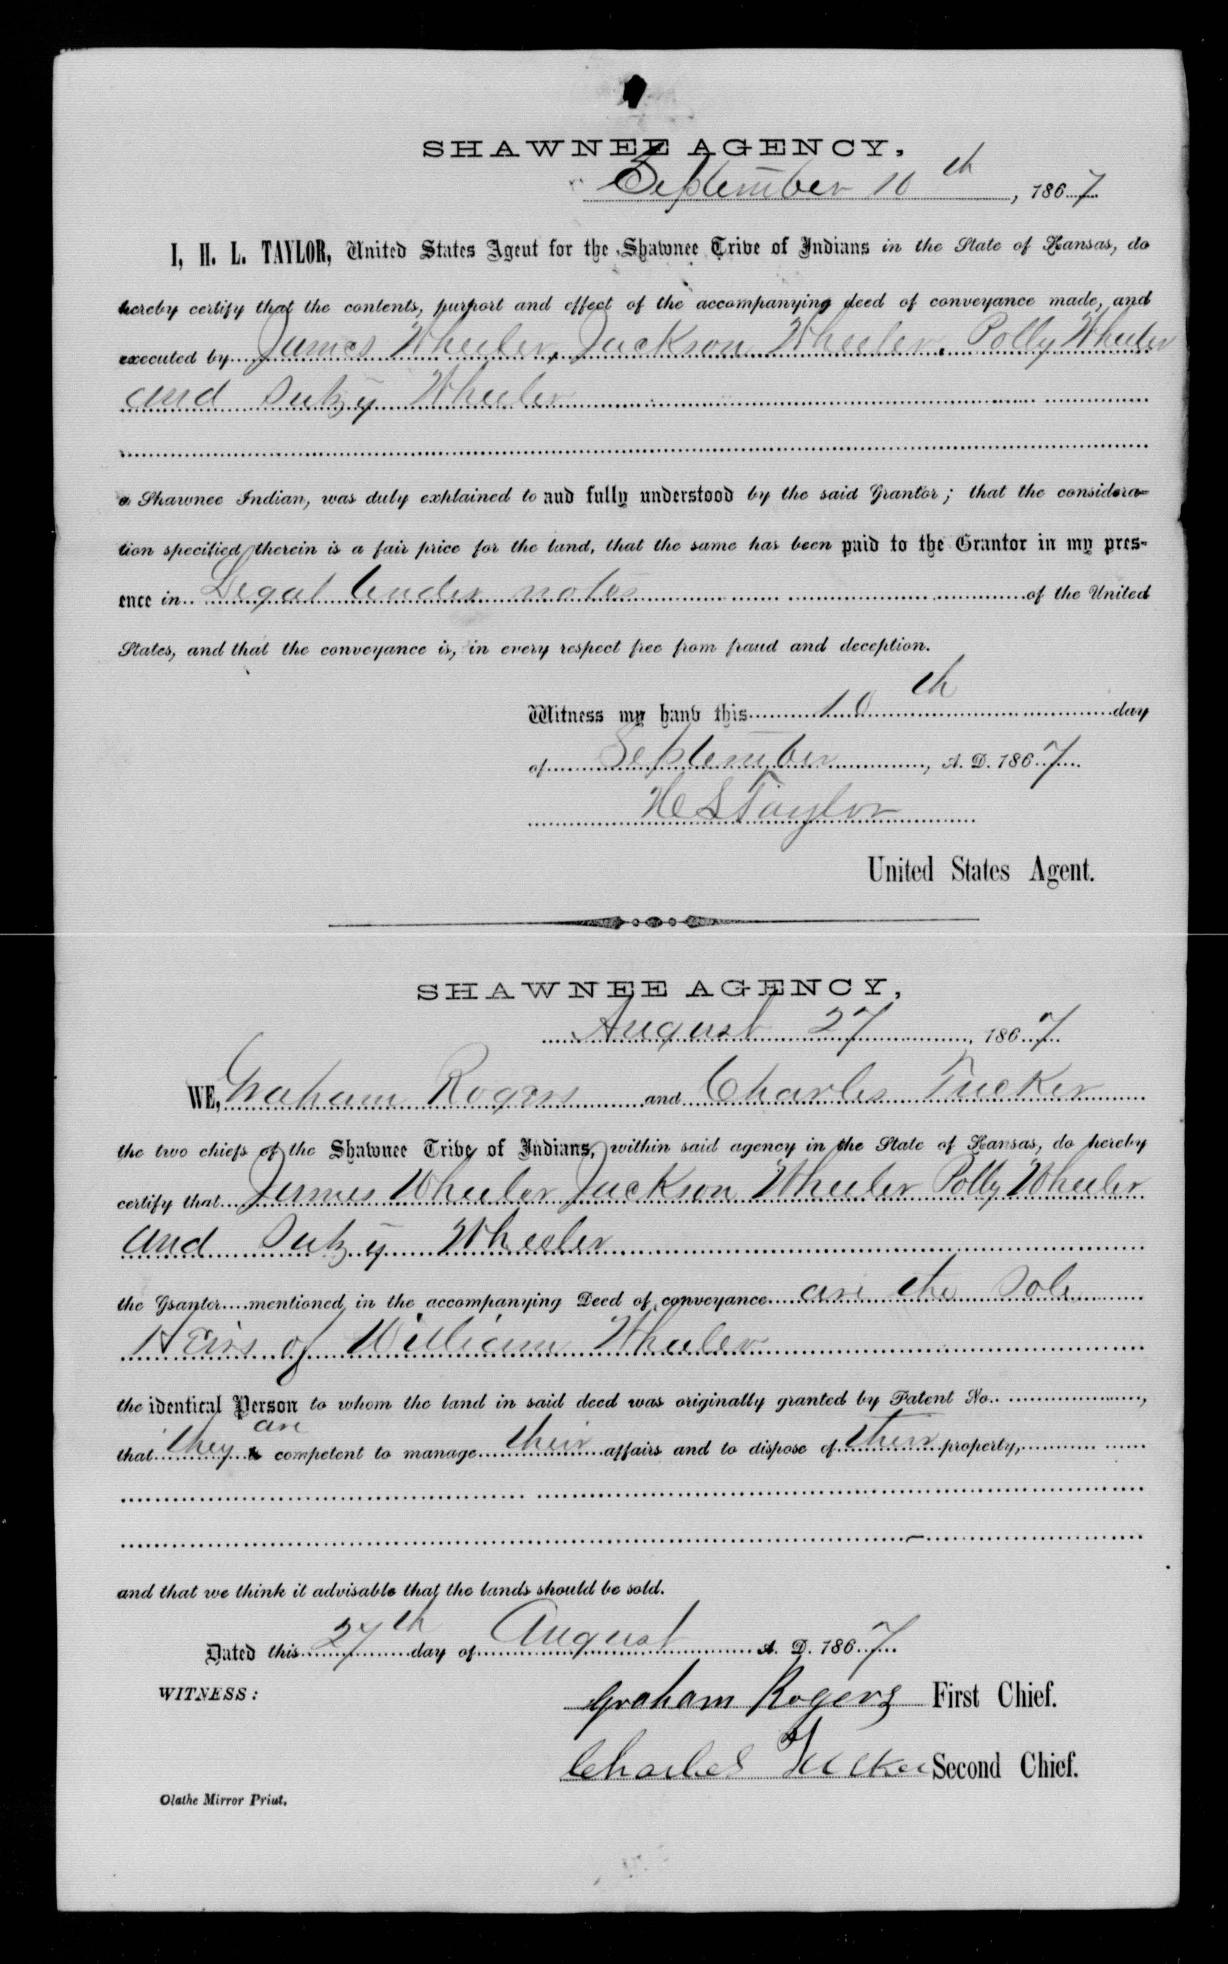 SHAWNEE AGENCY,
September 10th, 1867
I, H. L. TAYLOR, United States Agent for the Shawnee Tribe of Indians in the State of Kansas, do
hereby certify that the contents, purport and effect of the accompanying deed of conveyance made, and
executed by James Wheeler, Jackson Wheeler, Polly Wheeler
and Sukzy Wheeler
a Shawnee Indian, was duly explained to and fully understood by the said Grantor; that the considera-
tion specified therein is a fair price for the land, that the same has been paid to the Grantor in my pres-
ence in Legal tender notes of the United
States, and that the conveyance is, in every respect free from fraud and deception.
Witness my hand this 10th day
of September, A. D. 1867
H L Taylor
United States Agent.
SHAWNEE AGENCY,
August 27, 1867
WE, Graham Rogers and Charles Tucker
the two chiefs of the Shawnee Tribe of Indians, within said agency in the State of Kansas, do hereby
certify that James Wheeler Jackson Wheeler Polly Wheeler
and Sukzy Wheeler
the Grantor mentioned in the accompanying Deed of conveyance are the Sole
Heirs of William Wheeler
the identical Person to whom the land in said deed was originally granted by Patent No. ,
are
that they is competent to manage their affairs and to dispose of their property,
and that we think it advisable that the lands should be sold.
Dated this 27th day of August A. D. 1867
WITNESS:
Graham Rogers First Chief.
Charles Tucker Second Chief.
Olathe Mirror Print.